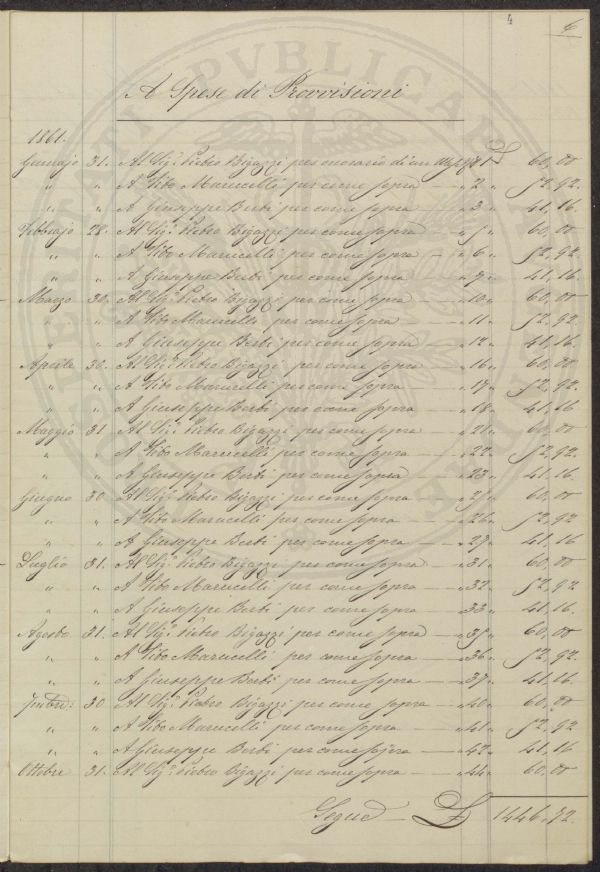 4
6
A Spese di Provvisioni
1861.
Gennajo 31. Al Sig.r Pietro Bigazzi per onorario d'un 1 £ 60,00
" " A Tito Marucelli per come sopra — " 2 " 52,92.
" " A Giuseppe Berti per come sopra — " 3 " 41,16.
Febbrajo 28. Al Sig.r Pietro Bigazzi per come sopra — " 5 " 60,00
" " A Tito Marucelli per come sopra — " 6 " 52,92
" " A Giuseppe Berti per come sopra — " 7 " 41,16.
Marzo 30. Al Sig.r Pietro Bigazzi per come sopra — " 10 " 60,00
" " A Tito Marucelli per come sopra — " 11 " 52,92.
" " A Giuseppe Berti per come sopra — " 12 " 41,16
Aprile 30. Al Sig.r Pietro Bigazzi per come sopra — " 16 " 60,00
" " A Tito Marucelli per come sopra — " 17 " 52,92.
" " A Giuseppe Berti per come sopra — " 18 " 41,16
Maggio 31 Al Sig.r Pietro Bigazzi per come sopra — " 21 " 60,00
" " A Tito Marucelli per come sopra — " 22 " 52,92.
" " A Giuseppe Berti per come sopra — " 23 " 41,16.
Giugno 30 Al Sig.r Pietro Bigazzi per come sopra — " 25 " 60,00
" " A Tito Marucelli per come sopra — " 26 " 52,92
" " A Giuseppe Berti per come sopra — " 27 " 41,16
Luglio 31. Al Sig.r Pietro Bigazzi per come sopra — " 31 " 60,00
" " A Tito Marucelli per come sopra — " 32 " 52,92
" " A Giuseppe Berti per come sopra — " 33 " 41,16.
Agosto 31. Al Sig.r Pietro Bigazzi per come sopra — " 35 " 60,00
" " A Tito Marucelli per come sopra — " 36 " 52,92.
" " A Giuseppe Berti per come sopra — " 37 " 41,16
7mbre: 30 Al Sig.r Pietro Bigazzi per come sopra — " 40 " 60,00
" " A Tito Marucelli per come sopra — " 41 " 52,92
" " A Giuseppe Berti per come sopra — " 42 " 41,16
Ottobre 31. Al Sig.r Pietro Bigazzi per come sopra — " 44 " 60,00
Segue £ 1446,72.